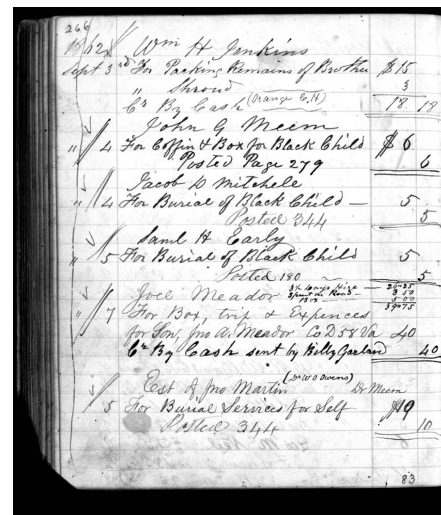 266
1862 Wm H Jenkins
Sept 3rd For Packing Remains of Brother $15
" Shroud 3
Cr By Cash (Orange C,H) 18 18
John G Meem
" 4 For Coffin & Box for Black Child $6
Posted Page 279 6
Jacob D Mitchele
" 4 For Burial of Black Child — 5
Posted 344 5
Saml H Early
" 5 For Burial of Black Child 5
Posted 180 5
Joel Meador 3½ days Hire — 26-25
3 8.50
Box — 5 00
39=75
" 7 For Box, trip & Expences
for Son, Jno A. Meador Co D 58 Va 40
Cr By Cash sent by Billy Garland 40
Est of Jno Martin (Dr W O Owens) Dr Meem
" 5 For Burial Services for Self $10
Posted 344 10
83